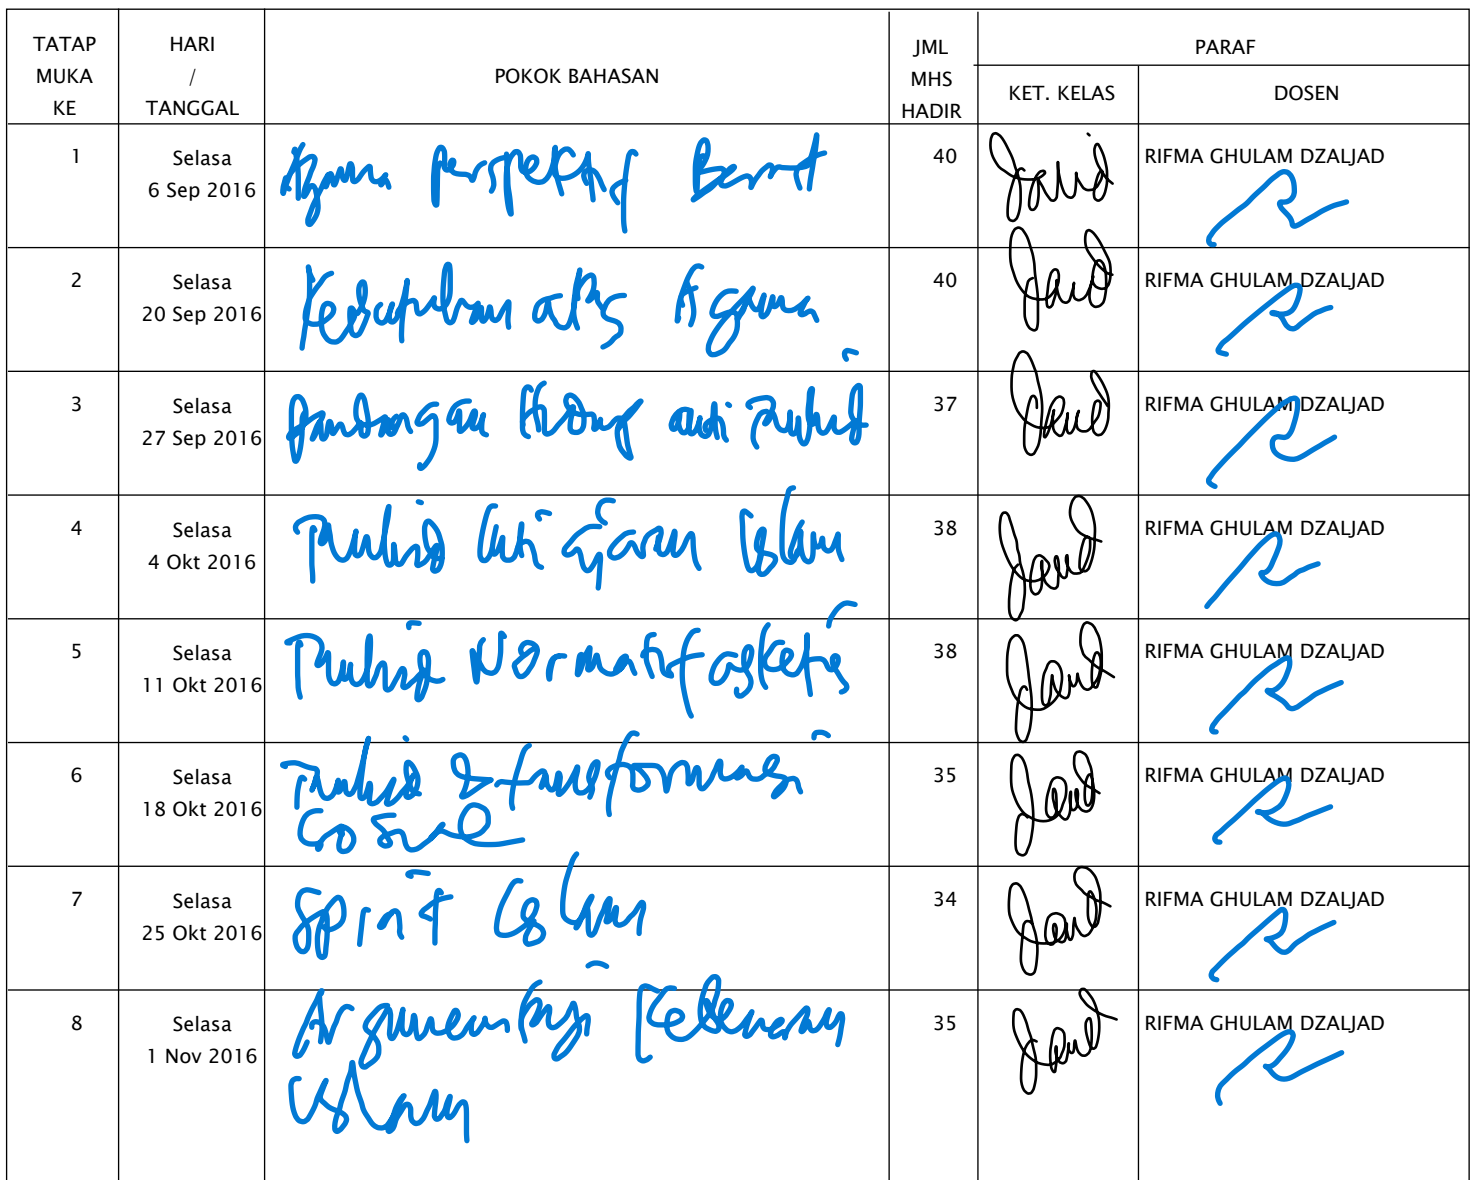 TATAP MUKA KE
HARI / TANGGAL
POKOK BAHASAN
JML MHS HADIR
PARAF
KET. KELAS
DOSEN
1 Selasa 6 Sep 2016 Agama Perspektif Barat 40 RIFMA GHULAM DZALJAD
2 Selasa 20 Sep 2016 Agama 40 RIFMA GHULAM DZALJAD
3 Selasa 27 Sep 2016 Pandangan Hidup anti Tauhid 37 RIFMA GHULAM DZALJAD
4 Selasa 4 Okt 2016 Tauhid inti ajaran Islam 38 RIFMA GHULAM DZALJAD
5 Selasa 11 Okt 2016 Tauhid Normatif asketis 38 RIFMA GHULAM DZALJAD
6 Selasa 18 Okt 2016 Tauhid & transformasi 35 RIFMA GHULAM DZALJAD
Sosial
7 Selasa 25 Okt 2016 Spirit Islam 34 RIFMA GHULAM DZALJAD
8 Selasa 1 Nov 2016 Argumentasi Kebenaran 35 RIFMA GHULAM DZALJAD
Islam